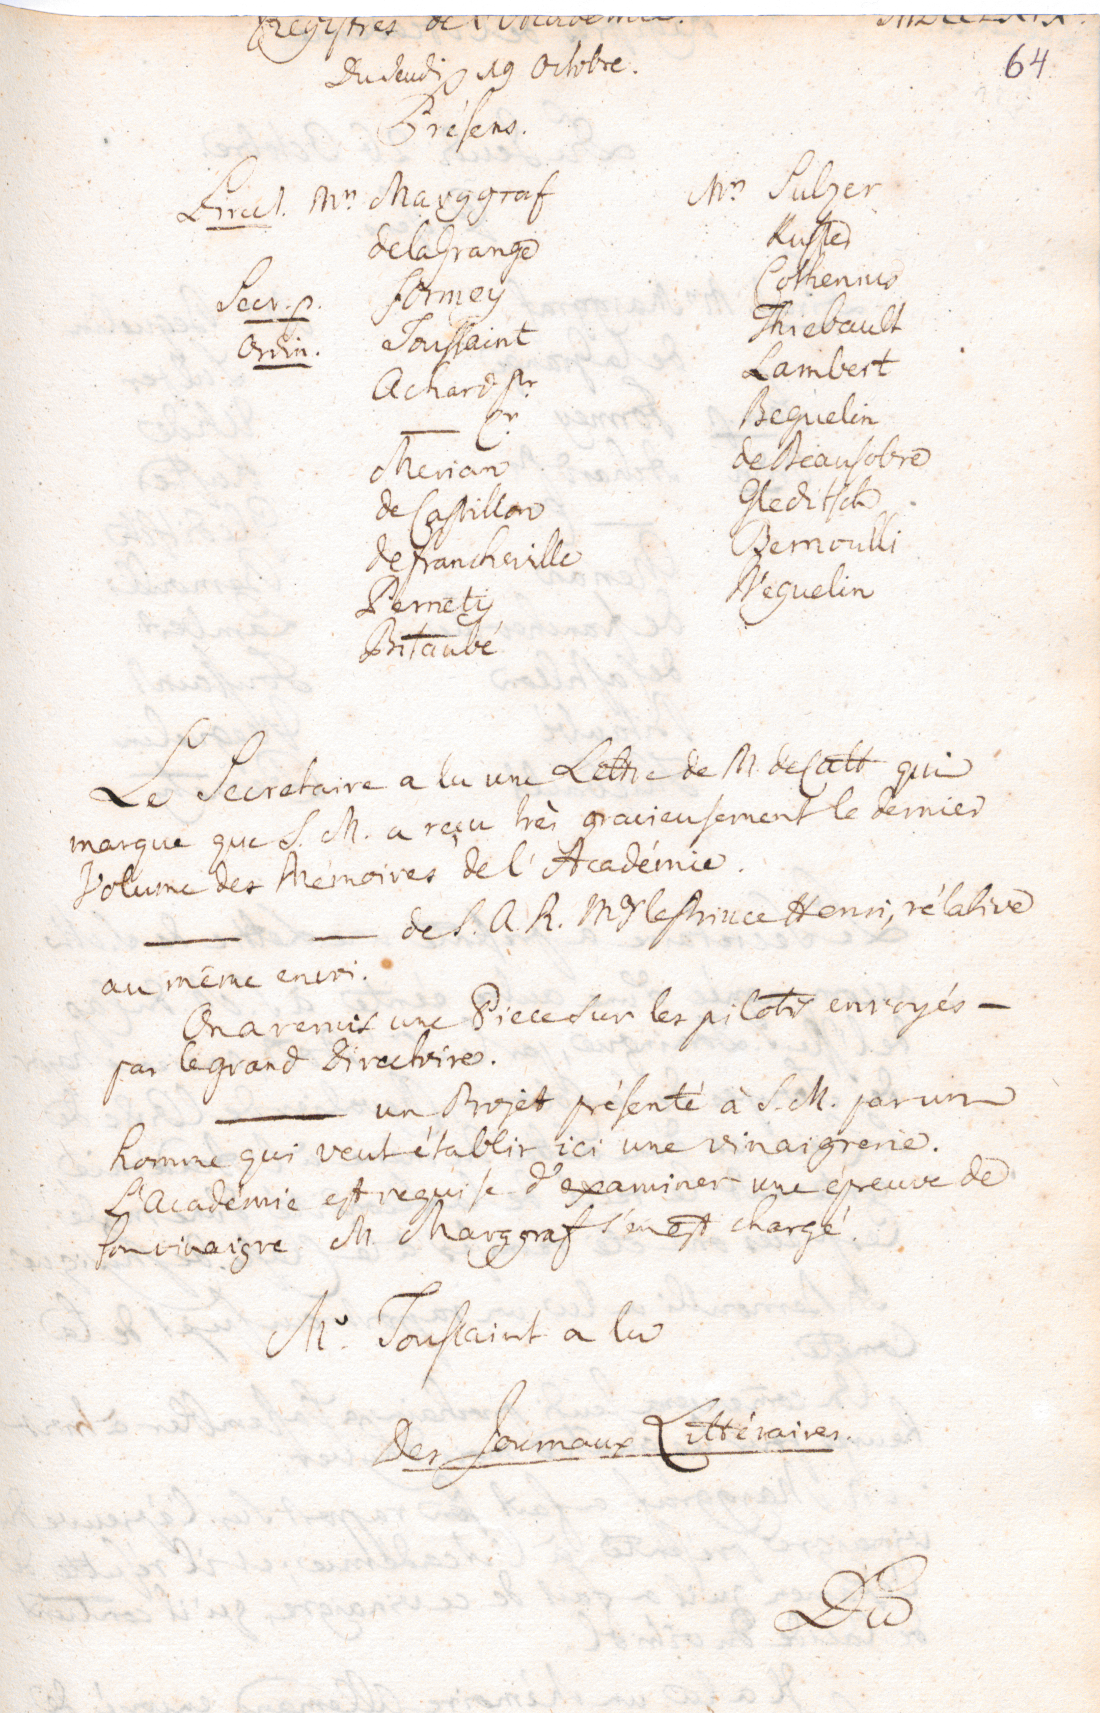 Registres de l'Académie. MDCCLXIX.
64
Du Jeudi 19 Octobre.
Présens.
Direct. Mrs Marggraf
de la Grange
Secr. p. Formey
Ordin. Toussaint
Achard Sr.
—— Jr.
Merian
de Castillon
de Francheville
Pernety
Bitaubé
Mrs Sulzer
Kuster
Cothenius
Thiebault
Lambert
Beguelin
de Beausobre
Gleditsch
Bernoulli
Weguelin
Le Secretaire a lu une Lettre de M. de Catt qui
marque que S. M. a reçu très gracieusement le dernier
Volume des Mémoires de l'Académie.
—— —— de S. A. R. Mgr le Prince Henri, rélative
au même envoi.
On a remis une Piece sur les pilotis envoyés —
par le grand Directoire.
—— un Projet présenté à S. M. par un
homme qui veut établir ici une vinaigrerie.
L'Académie est requise d'examiner une épreuve de
son vinaigre M. Marggraf s'en est chargé.
Mr. Toussaint a lu
Des Journaux Littéraires.
Du